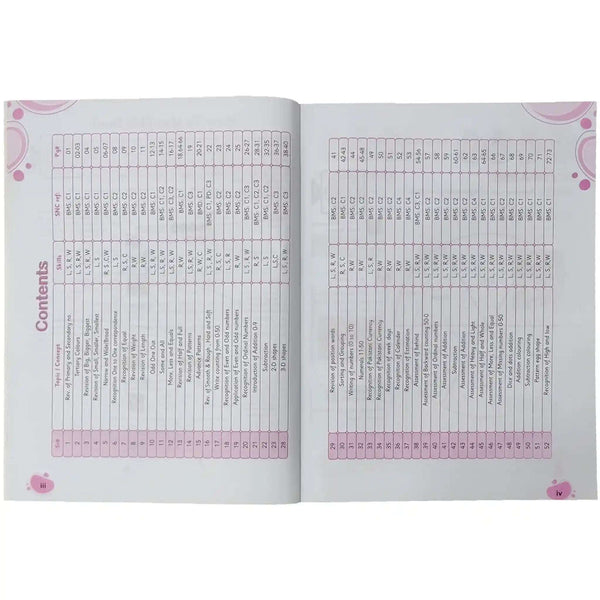 Contents
Sr# Topic / Concept Skills SNC ref: Pg#
1 Rev. of Primary and Secondary no L, S, R, W BMS: C1 01
2 Tertiary Colours L, S, R,W BMS: C1 02-03
3 Revision of Big, Bigger, Biggest L, S BMS: C1 04
4 Revision of Small, Smaller, Smallest L, S BMS: C1 05
5 Narrow and Wide/Broad R, S, C,W BMS: C2 06-07
6 Recognition of One to One correspondence L, S BMS: C2 08
7 Recognition of Equal R, S, C BMS: C2 09
8 Revision of Weight L, S BMS: C2 10
9 Revision of Length L, R,W BMS: C2 11
10 Odd One Out L, S, R,W BMS: C1 12-13
11 Same and All L, S BMS: C1, C2 14-15
12 More, Less and Equals L, S, R,W BMS: C1, C2 16-17
13 Revision of Half and Full L, S, R,W BMS: C1 18,64-66
14 Revision of Patterns R,W BMS: C3 19
15 Advance Patterns R,W, C BMS: C3 20-21
16 Rev. of Smooth & Rough , Hard and Soft L, S, R,W BMS: C1, PD; C3 22
17 Write counting from 0-50 R,W BMS: C2 23
18 Recognition of Even and Odd numbers R,W BMS: C2 24
19 Application of Even and Odd numbers R,W BMS: C2 25
20 Recognition of Ordinal Numbers L, S, R,W BMS: C1, C3 26-27
21 Introduction of Addition 0-9 R, S BMS: C1, C2, C3 28-31
22 Subtraction L, S BMS: C1, C2 32-35
23 2-D shapes L,S,C BMS: C3 36-37
28 3-D shapes L, S, R,W BMS: C3 38-40
iii
29 Revision of position words L, S, R, W BMS: C2 41
30 Sorting and Grouping R, S, C BMS: C1 42-43
31 Writing Numerals (0- 10) R,W BMS: C2 44
32 Numerals 11-50 R,W 45-48
33 Recognition of Pakistan Currency L, S, R 49
34 Recognition of Pakistani Currency 50
35 Recognition of week days 51
36 Recognition of Calendar 52
37 Recognition of Estimation 53
38 Assessment of Behind 54-56
39 Assessment of Backward counting 50-0 57
40 Assessment of Cardinal numbers 58
41 Assessment of Addition 59
42 Subtraction 60-61
43 Assessment of Addition 62
44 Assessment of Heavy and Light 63
45 Assessment of Half and Whole 64-65
46 Assessment of More, Less and Equal 66
47 Assessment of Missing numbers 0-50 67
48 Dice and dots addition 68
49 Addition coloring 69
50 Subtraction colouring 70
51 Pattern egg shape 71
52 Recognition of High and low 72-73
iv